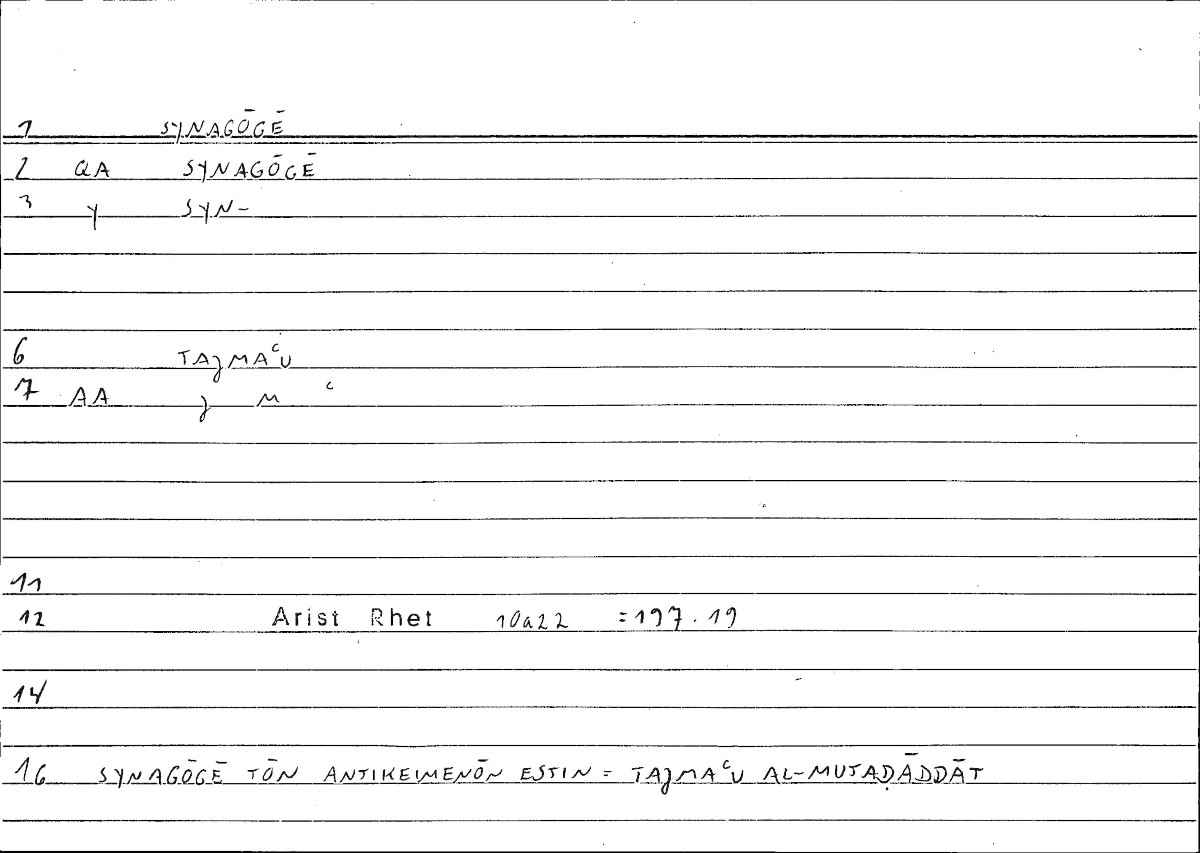 1 SYNAGŌGĒ
2 QA SYNAGŌGĒ
3 y SYN-
6 TAJMAᶜU
7 AA J M ᶜ
11
12 Arist Rhet 10a22 =197.19
14
16 SYNAGŌGĒ TŌN ANTIKEIMENŌN ESTIN = TAJMAᶜU AL-MUTAḌĀDDĀT